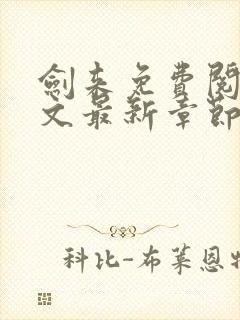 劍来免費閱
文最新章節
科比-布莱恩特